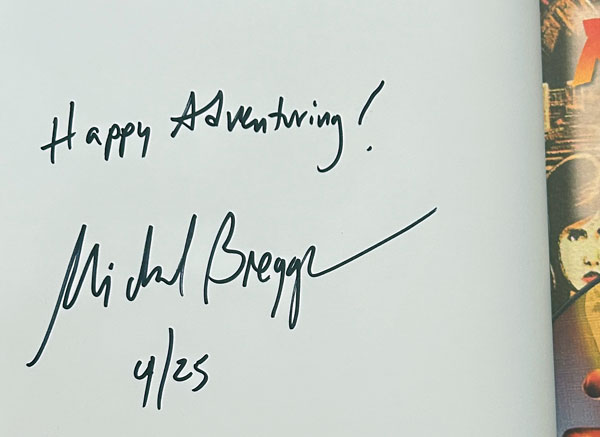 Happy Adventuring!
Michael Breggar
4/25